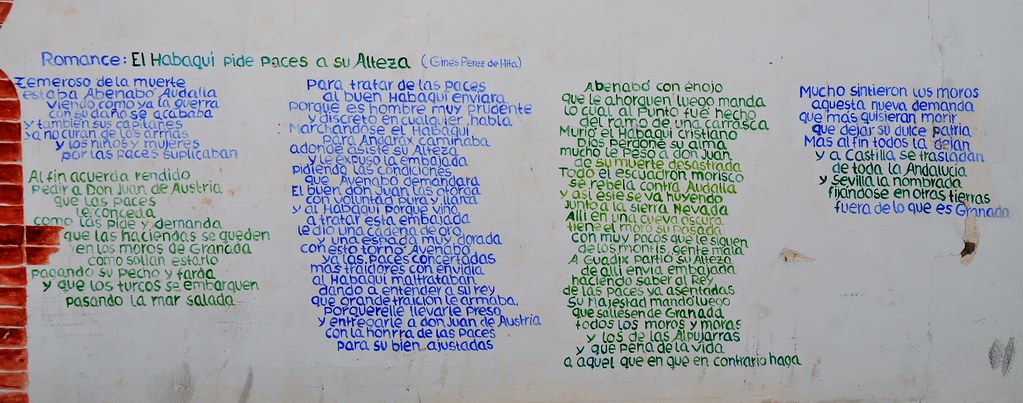 Romance: El Habaqui pide paces a su Alteza (Ginés Pérez de Hita)
Temeroso de la muerte
estaba Abenabo Audalla
viendo como ya la guerra
con su daño se acababa
y también sus capitanes
ya no curan de las armas
y los niños y mujeres
por las paces suplicaban
Al fin acuerda rendido
pedir a Don Juan de Austria
que las paces
le conceda
como las pide y demanda
que las haciendas se queden
en los moros de Granada
como solían estarlo
pagando su pecho y farda
y que los turcos se embarquen
pasando la mar salada
Para tratar de las paces
al buen Habaqui enviara
porque es hombre muy prudente
y discreto en cualquier habla
Marchándose el Habaqui
para Andarax caminaba
adonde asiste su Alteza
y le expuso la embajada
pidiendo las condiciones
que Avenabo demandara
El buen don Juan las otorga
con voluntad pura y llana
y al Habaqui porque vino
a tratar esta embajada
le dio una cadena de oro
y una espada muy dorada
con esto torno Avenabo
ya las paces concertadas
más traidores con envidia
al Habaqui maltrataban
dando a entender a su rey
que grande traición le armaba,
porquerelle llevarle preso
y entregarle a don Juan de Austria
con la honrra de las paces
para su bien ajustadas
Abenabó con enojo
que le ahorquen luego manda
lo cual al punto fue hecho
del ramo de una carrasca
Murió el Habaqui cristiano
Dios perdone su alma
mucho le peso a don Juan
de su muerte desastrada
Todo el escuadrón morisco
se rebela contra Audalla
y así este se va huyendo
junto a la sierra Nevada
Allí en una cueva oscura
tiene el moro su posada
con muy pocos que le siguen
de los monfis, gente mala
A Guadix partio su Alteza
de allí envia embajada
haciendo saber al Rey
de las paces ya asentadas
Su Majestad mando luego
que saliesen de Granada
todos los moros y moras
y los de las Alpujarras
y que pena de la vida
a aquel que en que en contrario haga
Mucho sintieron los moros
aquesta nueva demanda
que más quisieran morir
que dejar su dulce patria
Mas al fin todos la dejan
y a Castilla se trasladan
de toda la Andalucía
y Sevilla la nombrada
fijándose en otras tierras
fuera de lo que es Granada